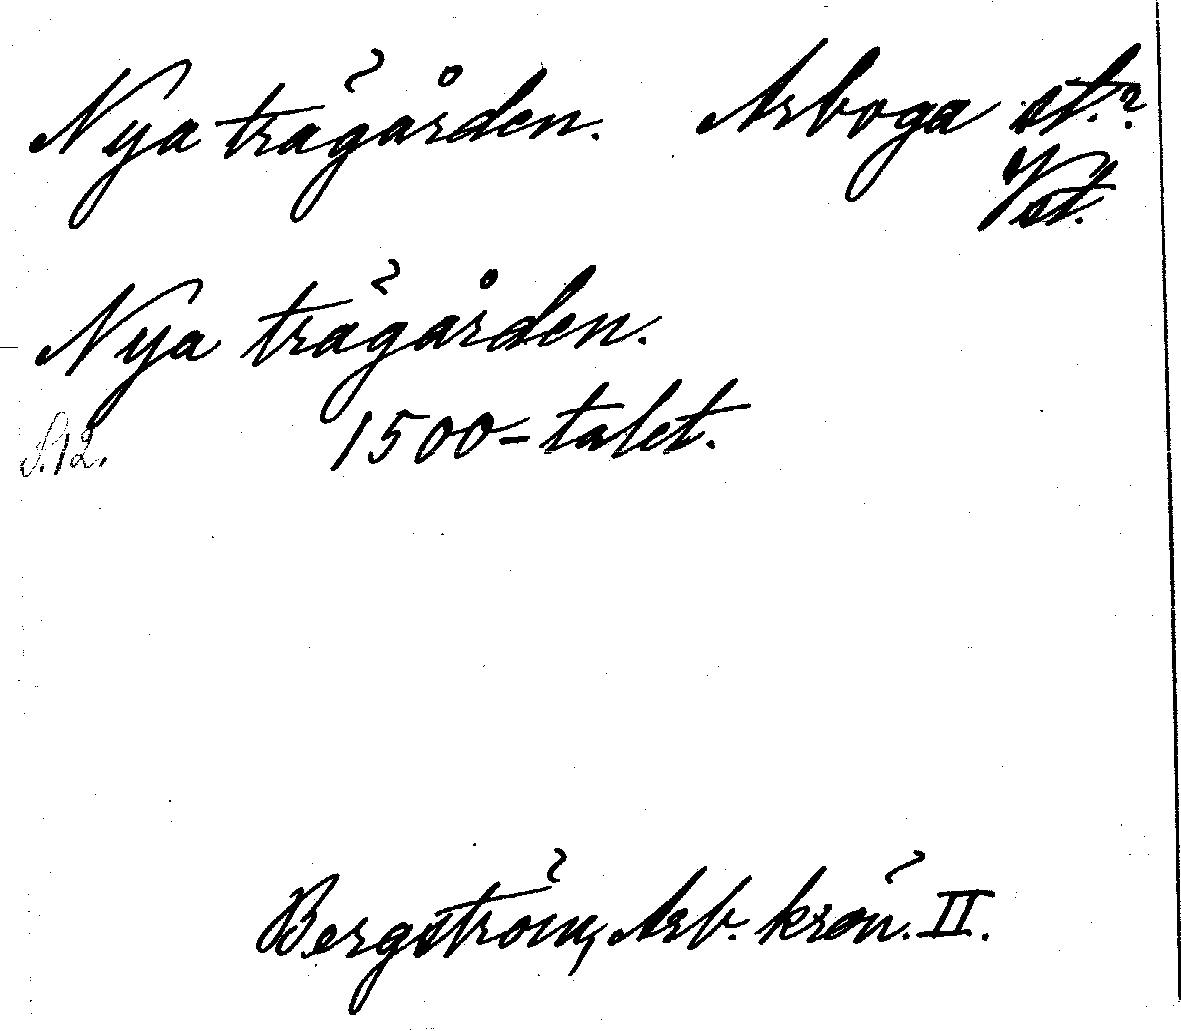 Nya trägården. Arboga st.?
Vst.
Nya trägården.
S. 12. 1500-talet.
Bergström, Arb. krön. II.